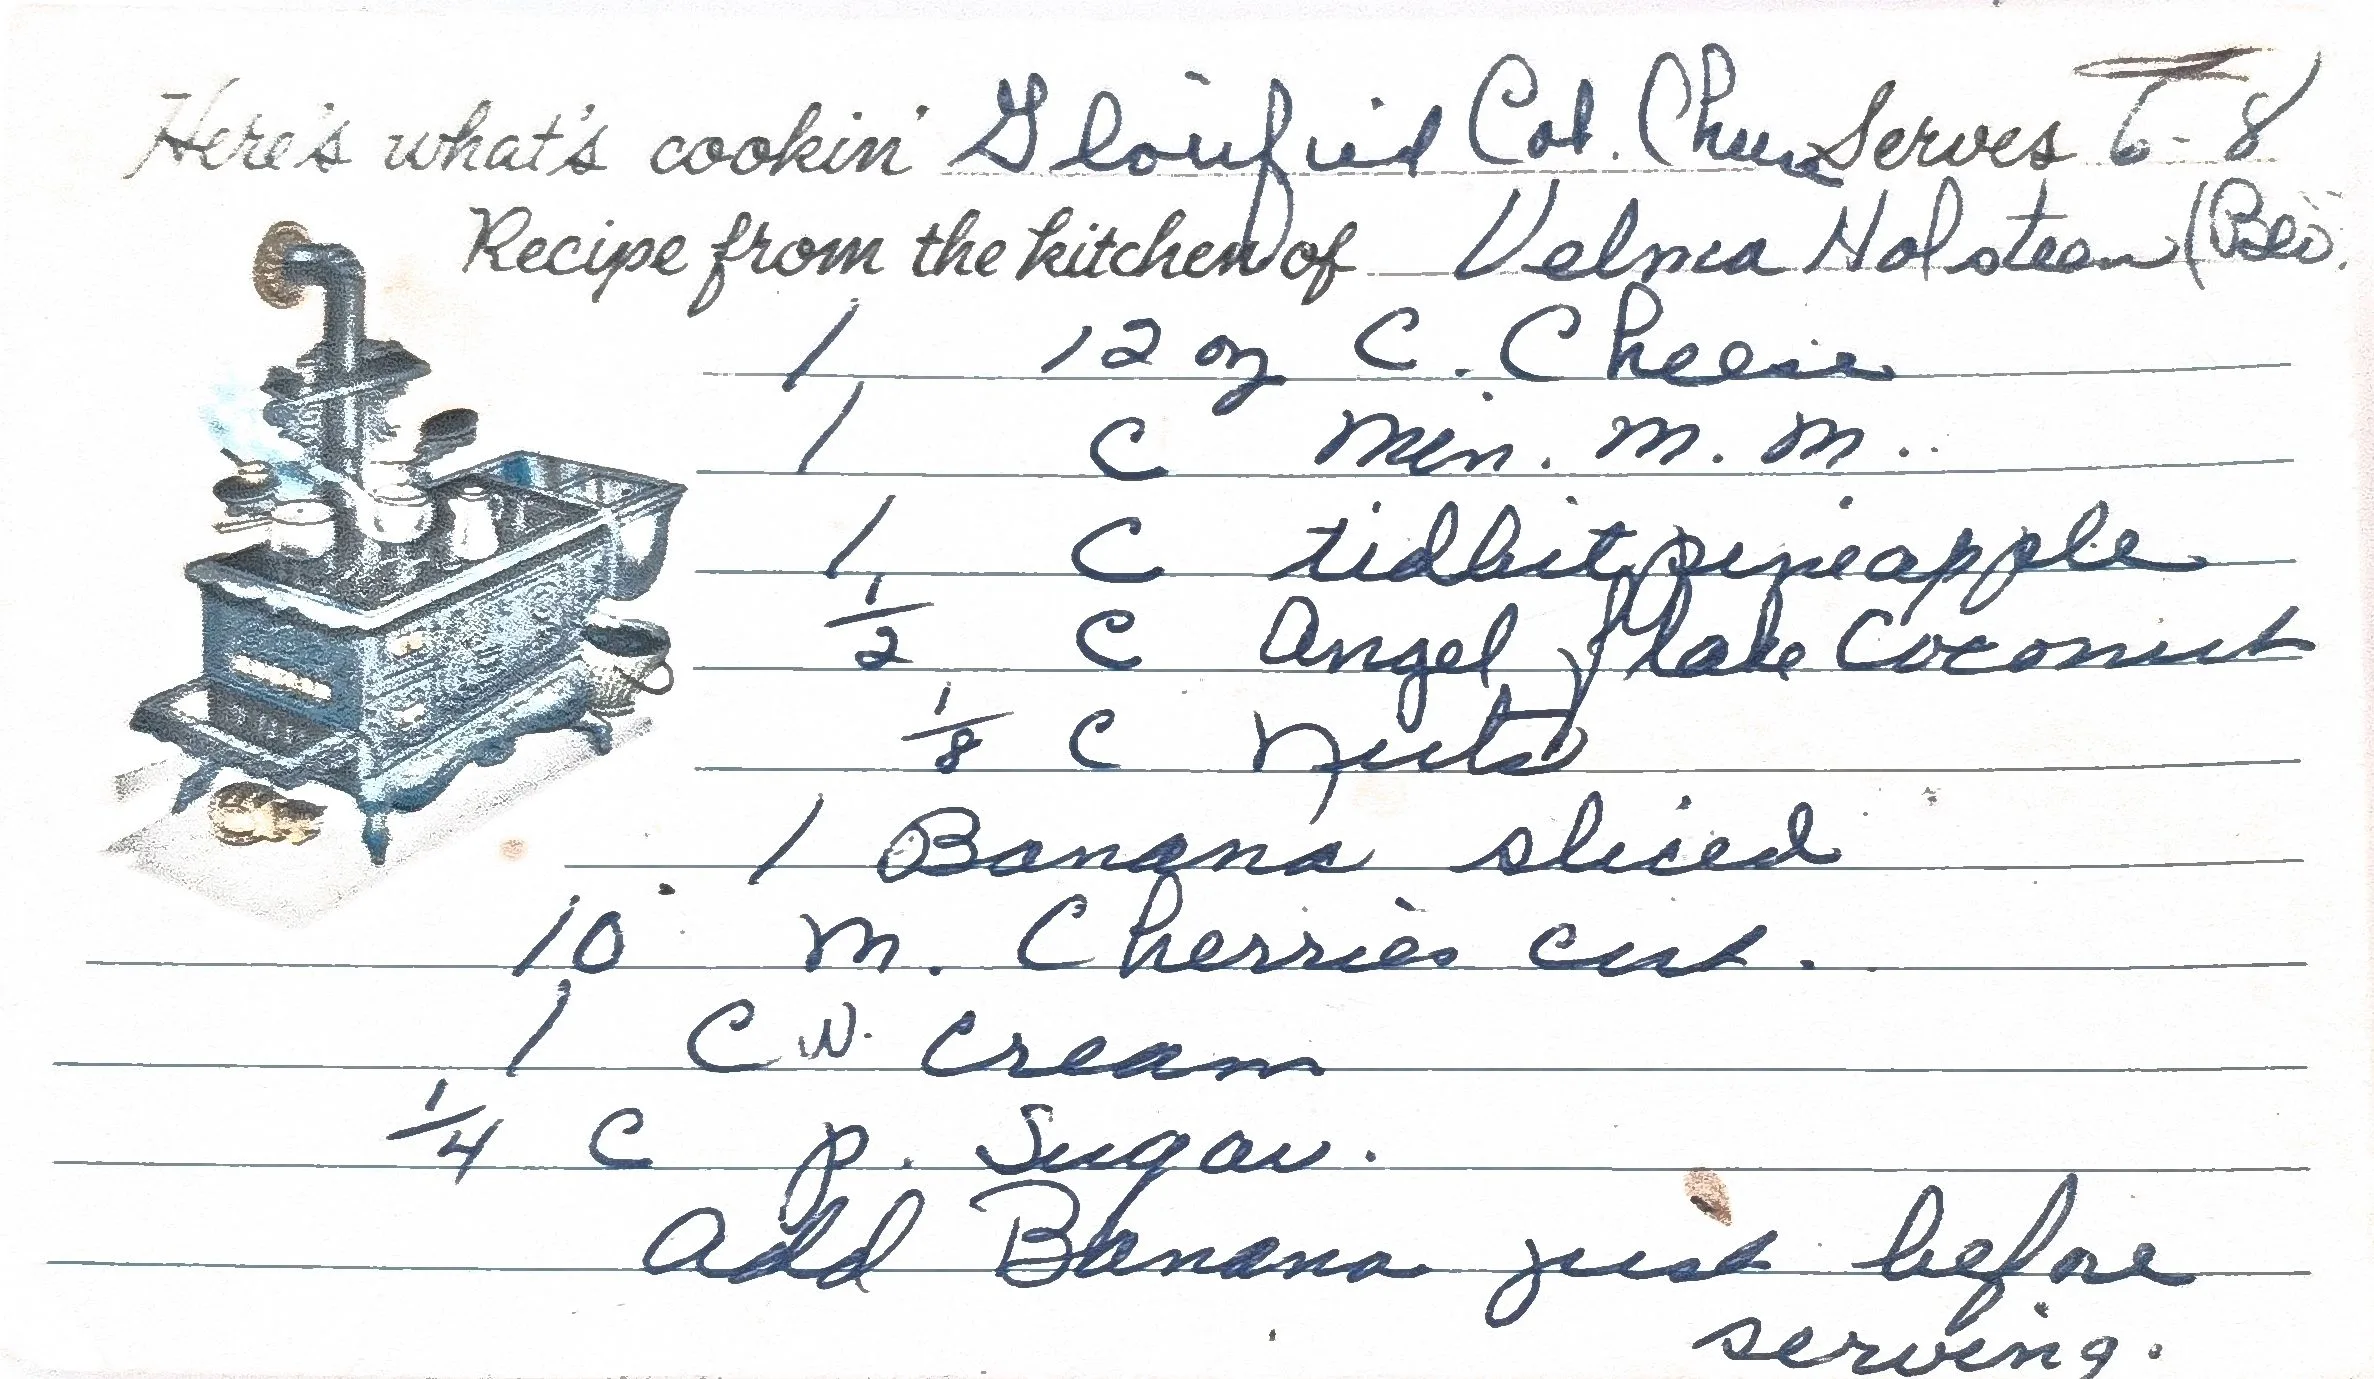 Here's what's cookin' Glorified Cot. Cheese Serves 6-8
Recipe from the kitchen of Velma Holsteen (Bev.
1 12 oz C. Cheese
1 C min. m. m..
1 C tidbit pineapple
1/2 C Angel flake Coconut
1/8 C nuts
1 Banana sliced
10 m. Cherries cut.
1 C W. Cream
1/4 C p. Sugar.
Add Banana just before
serving.